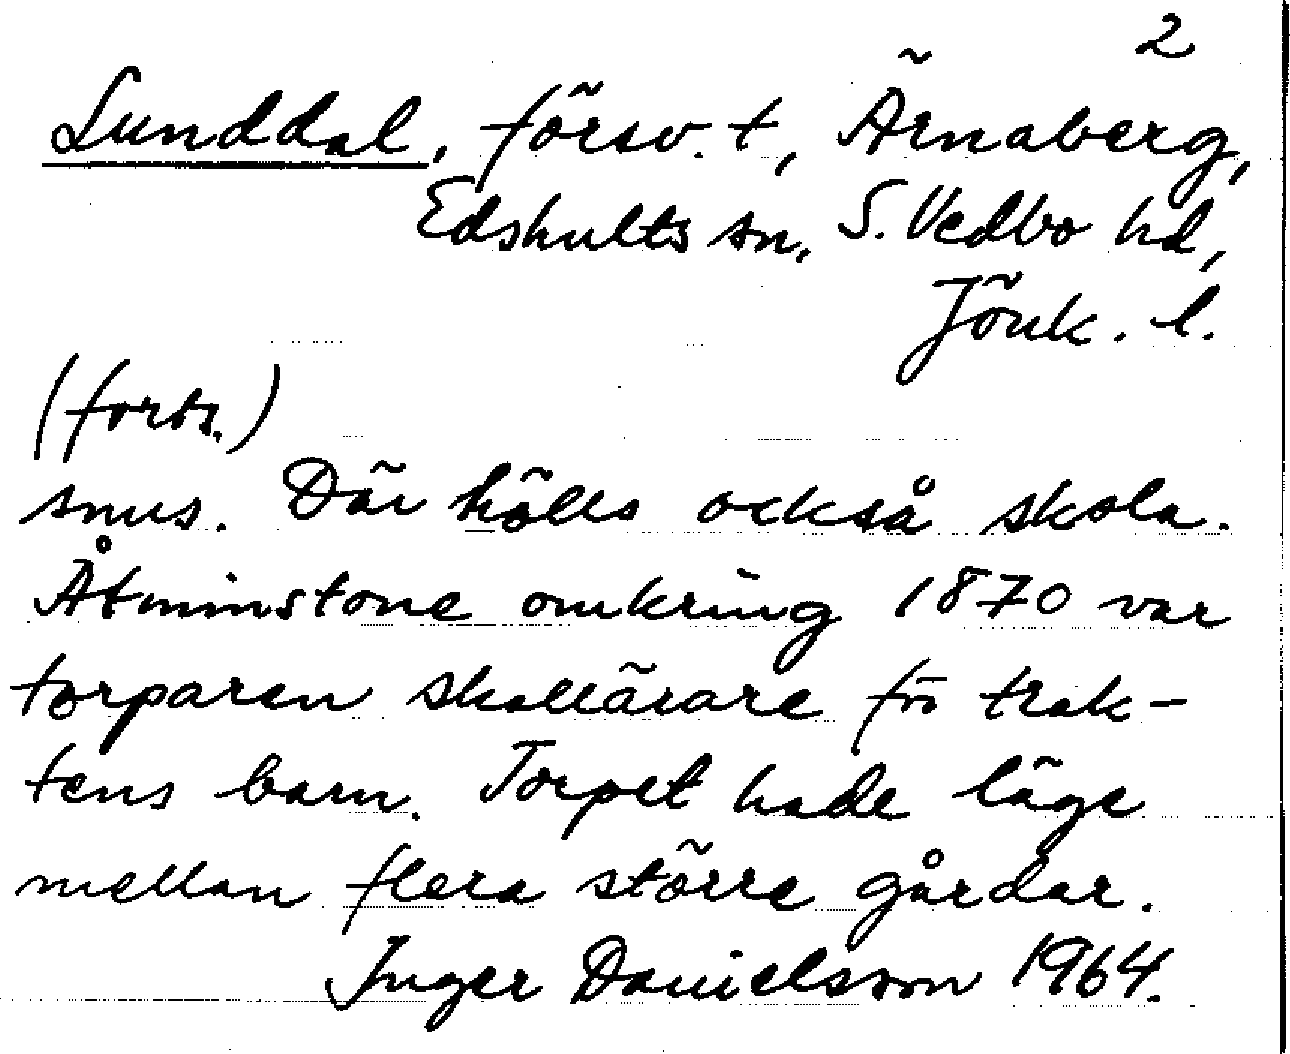 2
Lunddal, försv. t, Ärnaberg,
Edshults sn, S. Vedbo hd,
Jönk. l.
(forts.)
snus. Där hölls också skola.
Åtminstone omkring 1870 var
torparen skollärare för trak-
tens barn. Torpet hade läge
mellan flera större gårdar.
Inger Danielsson 1964.